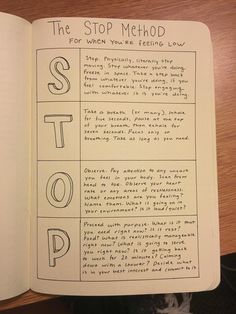 The STOP METHOD
FOR WHEN YOU'RE FEELING LOW
S
Stop. Physically, literally stop
moving. Stop whatever you're doing,
freeze in space. Take a step back
from whatever you're doing, if you
feel comfortable. Stop engaging
with whatever it is you're doing.
T
Take a breath (or many). Inhale
for five seconds, pause at the top
of your breath, then exhale for
seven seconds. Focus only on
breathing. Take as long as you need.
O
Observe. Pay attention to any
you feel in your body. Scan from
head to toe. Observe your heart
rate or any areas of restlessness.
What emotions are you feeling?
Name them. What is going on in
your environment? Is it loud/quiet?
P
Proceed with purpose. What is it that
you need right now? Is it rest?
Food? What is realistically manageable
right now? What is going to serve
you right now? Is it getting back
to work for 20 minutes? Calming
down with a shower? Decide what
is in your best interest and commit to it.